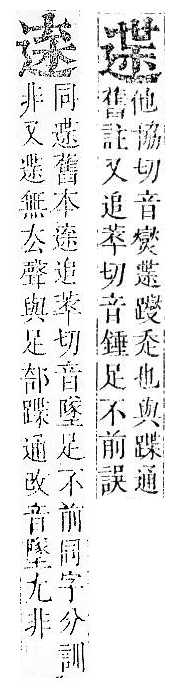 䢡
他協切音燮䢡躞走也與蹀通
舊註又追萃切音錘足不前誤
同䢡舊本追萃切音墜足不前同字分訓
非又䢡無去聲與足部蹀通改音墜尤非